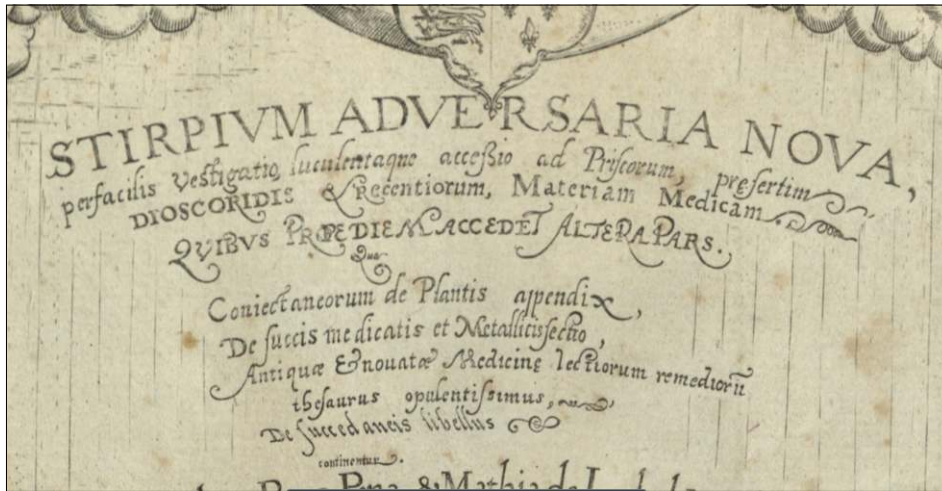 STIRPIVM ADVERSARIA NOVA,
perfacilis Vestigatio, luculentaque acceßio ad Priſcorum, pręſertim
DIOSCORIDIS & Recentiorum, Materiam Medicam
QVIBVS PROPEDIEM ACCEDET ALTERA PARS.
Qua
Coniectaneorum de Plantis appendix,
De ſuccis medicatis et Metallicis ſectio,
Antiquæ & nouatæ Medicinę lectiorum remediorū
theſaurus opulentiſſimus,
De ſuccedaneis libellus
continentur.
Pena & Mathia de